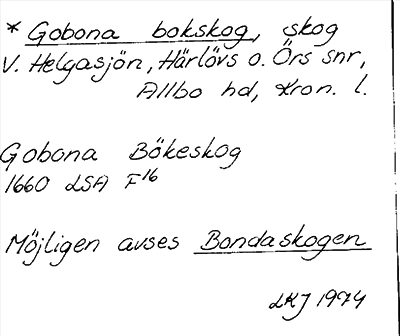 * Gobona bokskog, skog
V. Helgasjön, Härlövs o. Örs snr,
Allbo hd, Kron. l.
Gobona Bökeskog
1660 LSA F16
Möjligen avses Bondaskogen
LKJ 1974